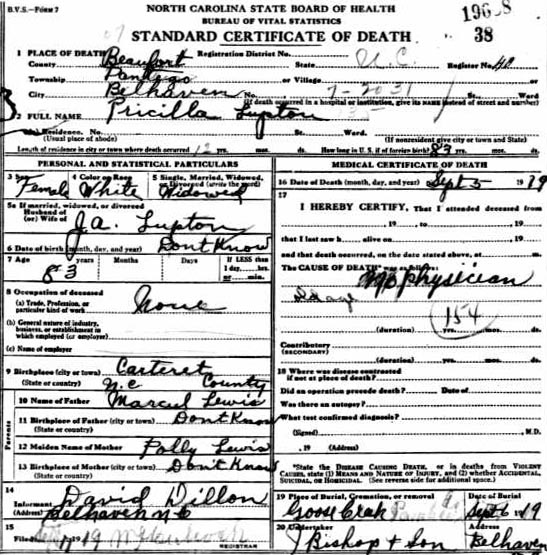 B.V.S.—Form 7
NORTH CAROLINA STATE BOARD OF HEALTH
BUREAU OF VITAL STATISTICS
STANDARD CERTIFICATE OF DEATH
38
1 PLACE OF DEATH Registration District No.
County Beaufort State N.C. Register No.
Township Pantego or Village or
City Belhaven No. St. Ward
7-20 31
(If death occurred in a hospital or institution, give its NAME instead of street and number)
2 FULL NAME Pricilla Lupton
(a) Residence. No. St. Ward.
(Usual place of abode) (If nonresident give city or town and State)
Length of residence in city or town where death occurred 12 yrs. mos. ds. How long in U. S. if of foreign birth? 83 yrs. mos. ds.
PERSONAL AND STATISTICAL PARTICULARS
3 Sex 4 Color or Race 5 Single, Married, Widowed, or Divorced (write the word)
Female White Widowed
5a If married, widowed, or divorced
Husband of
(or) Wife of J.A. Lupton
6 Date of birth (month, day, and year) Dont Know
7 Age years Months Days If LESS than
83 1 day, hrs.
or min.
8 Occupation of deceased
(a) Trade, Profession, or
particular kind of work None
(b) General nature of industry,
business, or establishment in
which employed (or employer)
(c) Name of employer
9 Birthplace (city or town) Carteret
(State or country) N.C County
Parents
10 Name of Father Marcul Lewis
11 Birthplace of Father (city or town) Dont Know
(State or country)
12 Maiden Name of Mother Polly Lewis
13 Birthplace of Mother (city or town) Don't Know
(State or country)
14
Informant David Dillon
(Address) Belhaven N C
15
Filed 19
REGISTRAR
MEDICAL CERTIFICATE OF DEATH
16 Date of Death (month, day, and year) Sept 5 1919
17
I HEREBY CERTIFY, That I attended deceased from
, 19 , to , 19
that I last saw h alive on , 19
and that death occurred, on the date stated above, at m.
The CAUSE OF DEATH* was as follows:
No physician
Old age
154
(duration) yrs. mos. ds.
Contributory
(SECONDARY)
(duration) yrs. mos. ds.
18 Where was disease contracted
if not at place of death?
Did an operation precede death? Date of
Was there an autopsy?
What test confirmed diagnosis?
(Signed) , M.D.
, 19 (Address)
*State the DISEASE CAUSING DEATH, or in deaths from VIOLENT
CAUSES, state (1) MEANS AND NATURE OF INJURY, and (2) whether ACCIDENTAL,
SUICIDAL, or HOMICIDAL. (See reverse side for additional space.)
19 Place of Burial, Cremation, or removal Date of Burial
Goose Creek Sept 6 1919
20 Undertaker Address
J Bishop + Son Belhaven